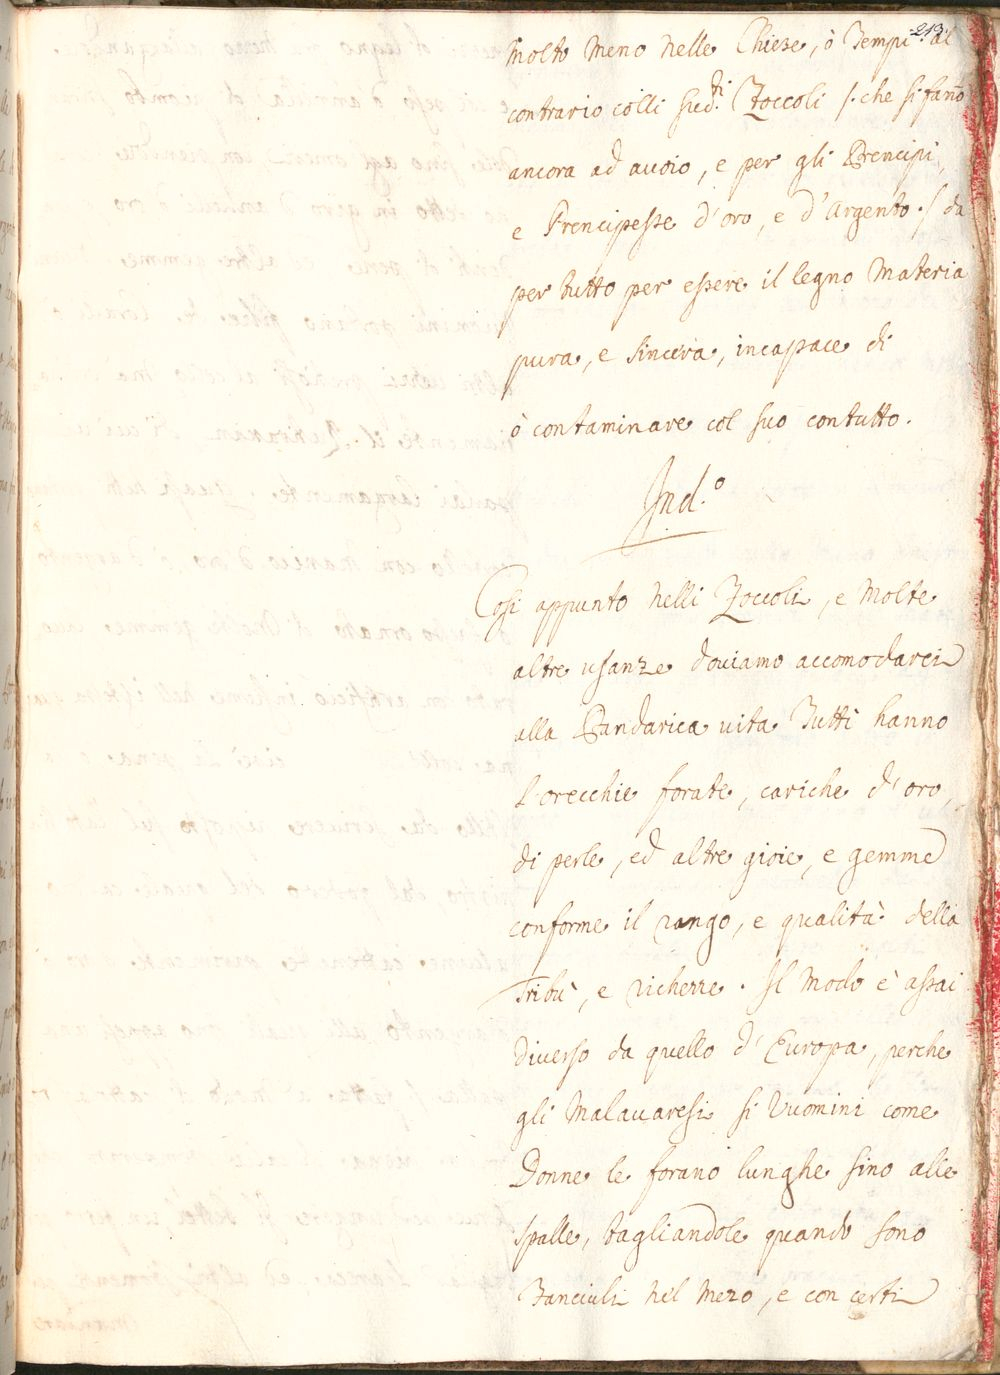 213.
Molto meno nelle Chiese, ò Tempi. al
contrario colli sud.ti Zoccoli /. che si fanno
ancora ad auoio, e per gli Prencipi,
e Prencipesse d'oro, e d'Argento ./ da
per tutto per essere il legno Materia
pura, e sincera, incapace di
ò contaminare col suo contutto.
Ind.o
Cosi appunto nelli Zoccoli, e Molte
altre usanze douiamo accomodarci
alla Pandarica uita Tutti hanno
l'orecchie forate, cariche d'oro,
di perle, ed altre gioie, e gemme
conforme il rango, e qualità della
Tribù, e richezze. Il Modo è assai
diuerso da quello d'Europa, perche
gli Malauaresi si Vuomini come
Donne le forano lunghe sino alle
spalle, tagliandole quando sono
Fanciulli nel mezo, e con certi